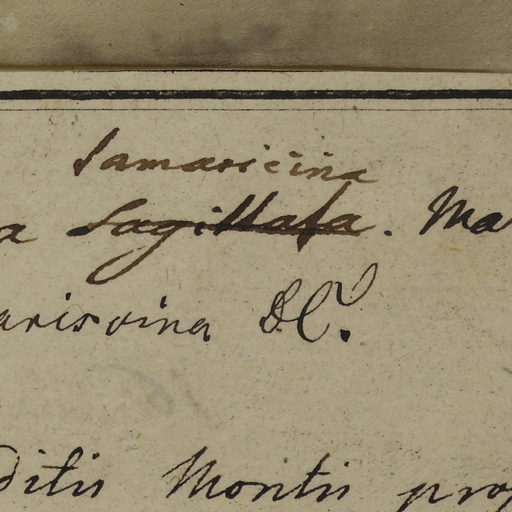 samaricina
a sagittata. Ma
arisvina DC.
ditis Montis pro